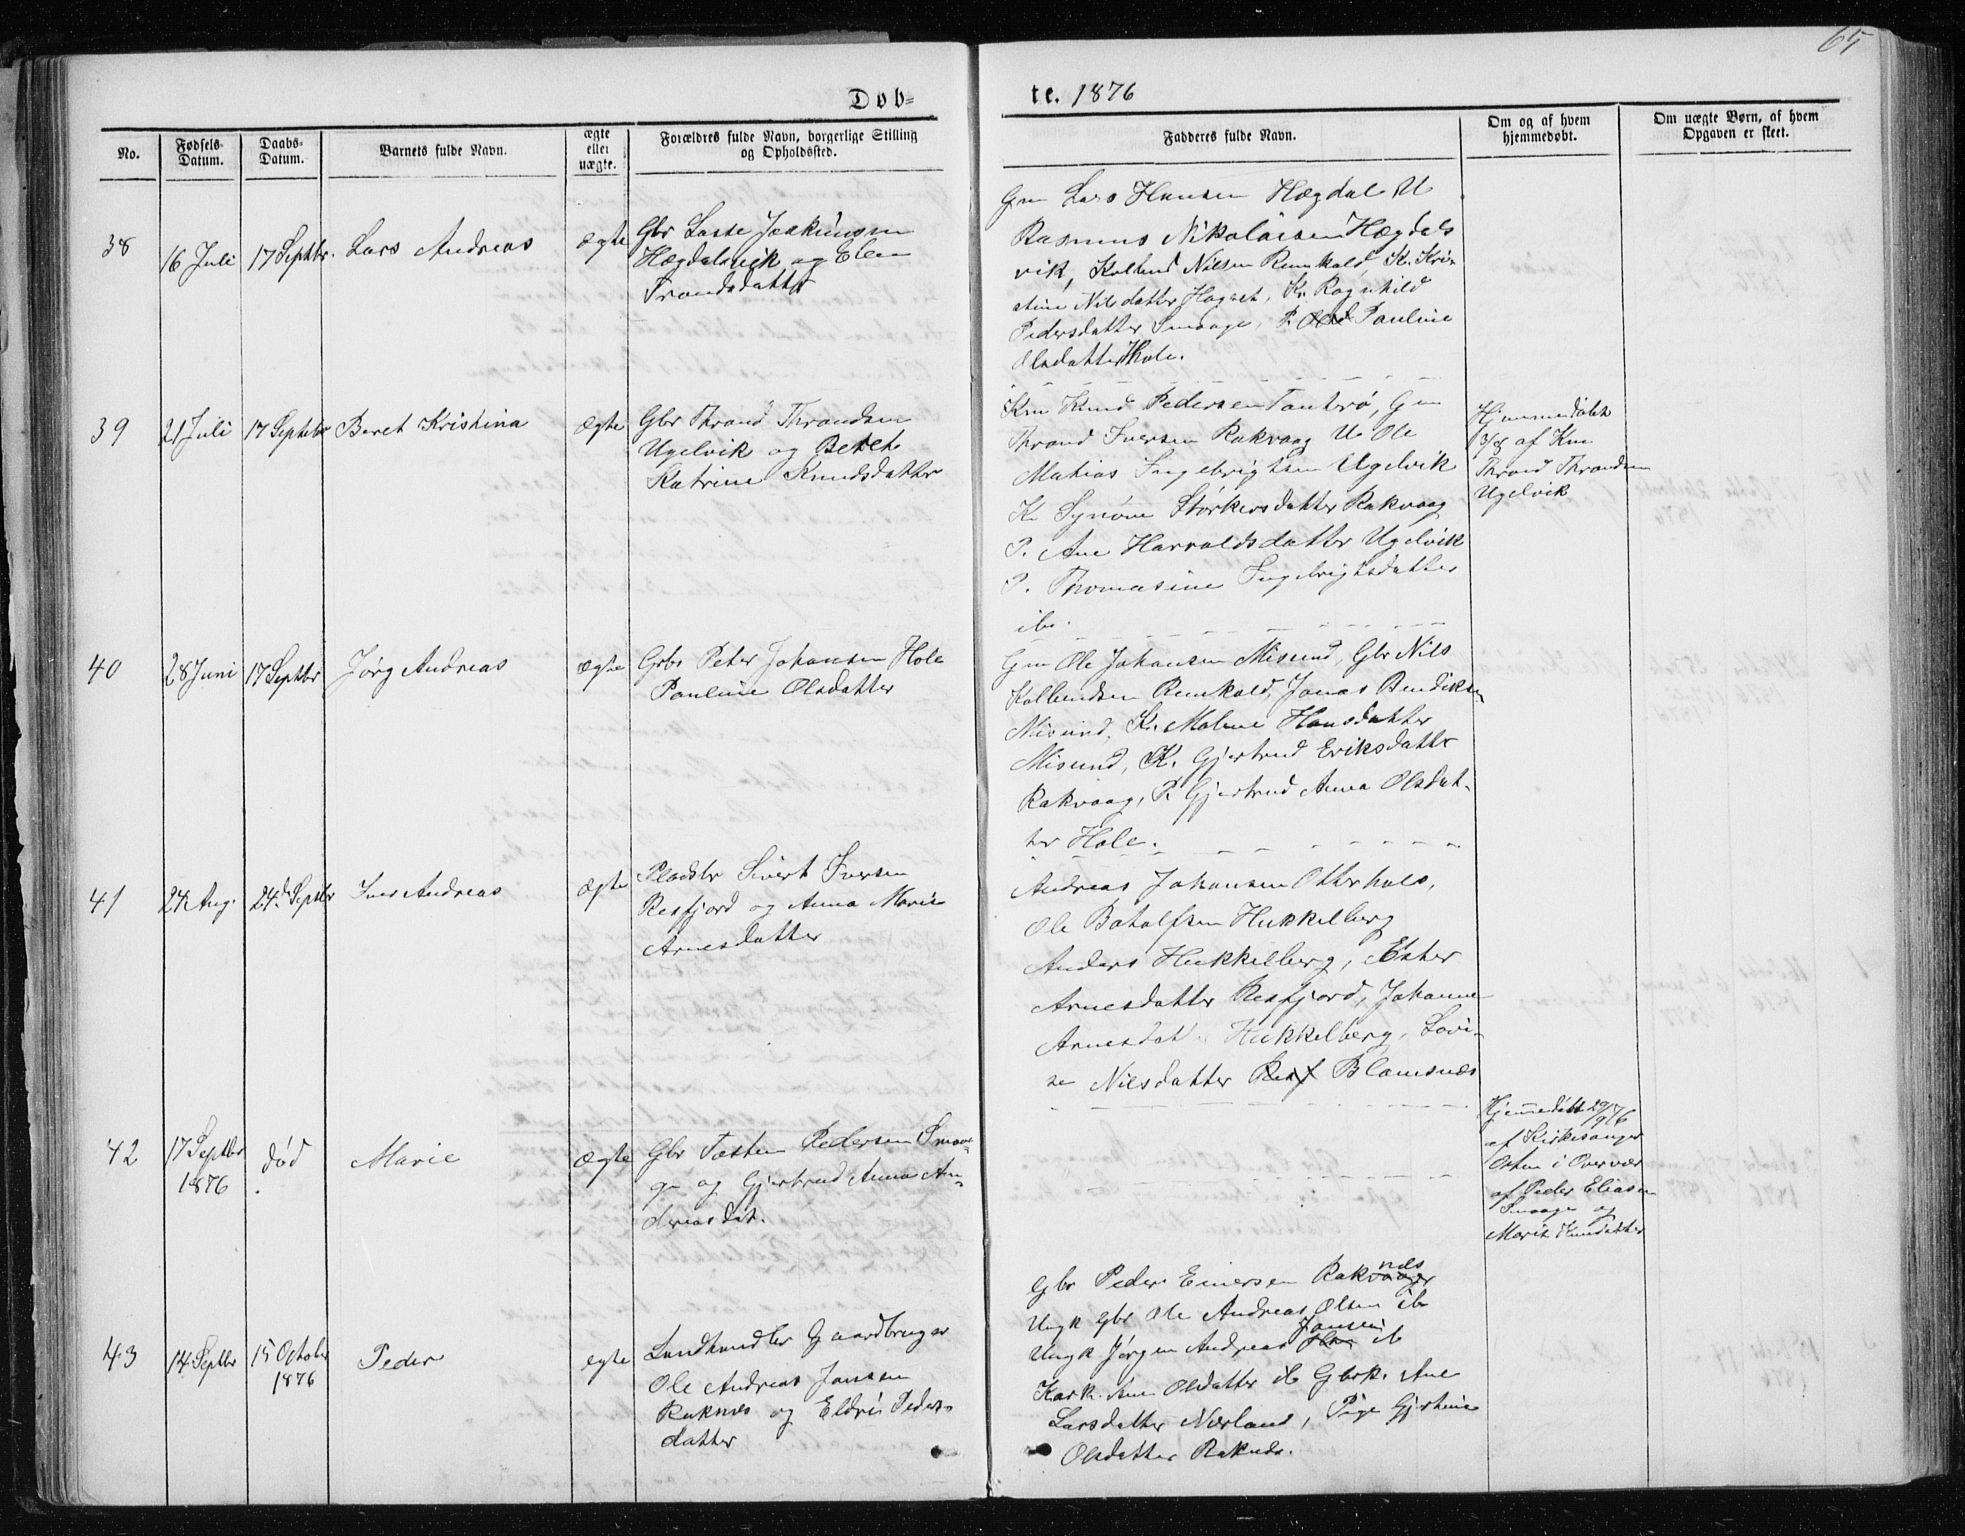 65
Døb-
te. 1876
No.
Fødsels-
Datum.
Daabs-
Datum.
Barnets fulde Navn.
ægte
eller
uægte.
Forældres fulde Navn, borgerlige Stilling
og Opholdssted.
Faddernes fulde Navn.
Om og af hvem
hjemmedøbt.
Om uægte Børn, af hvem
Opgaven er skeet.
38
16 Juli
17 Septbr.
Lars Andreas
ægte
Gbr Lasse Joakimsen
Hægdalsvik og Elen
Trondsdatter
Gm Lars Hansen Hægdal U
Rasmus Nikolaisen Hægdals
vik, Kolbend Nilsen Rendold, K. Kri-
stine Nilsdatter Hagset, K. Ragnhild
Pedersdatter Smaage, P. Pauline
Olsdatter Hole.
39
21 Juli
17 Septebr
Beret Kristina
ægte
Gbr Thrond Throndsen
Ugelvik og Beret
Katrine Knudsdatter
Km Knud Pedersen Tautrø, Gm
Thrond Iversen Rakvaag U Ole
Mathias Ingebrigtsen Ugelvik
K. Synøve Størkersdatter Rakvaag
P. Ane Harraldsdatter Ugelvik
P. Thomasine Ingebrigtsdatter
ibr.
Hjemmedøbt
7/8 af Km
Thrond Throndsen
Ugelvik
40
28 Juni
17 Septbr
Jørg Andreas
ægte
Grbr Peter Johansen Hole
Pauline Olsdatter
Gm Ole Johansen Misund, Gbr Nils
Kolbendsen Rendold, Jonas Bendiksen
Misund, K. Malene Hansdatter
Misund, K. Gjertrud Eriksdatter
Rakvaag, P. Gjertrud Anna Olsdat-
ter Hole.
41
24 Aug.
24de Septbr
Iver Andreas
ægte
Pladsbr Sivert Iversen
Resfjord og Anna Marie
Arnesdatter
Andreas Johansen Otterhals,
Ole Botolfsen Hukkelberg
Anders Hukkelberg, Ester
Arnesdatter Resfjord, Johanne
Arnesdat Hukkelberg, Lovi-
se Nilsdatter Resf Blamsnæs
42
17 Septbr
1876
død
Marie
ægte
Gbr Tosten Pedersen Smaa-
ge og Gjertrud Anna An-
dreasdat.
Hjemmedøbt 20/9 76
af Kirkesanger
Osten i Overvær
af Peder Eliasen
Smaage og
Marit Knudsdatter
43
14 Septbr
15 October
1876
Peder
egte
Landhandler Gaardbruger
Ole Andreas Jansen
Raknes og Eldri Peders-
datter
Gbr Peder Einersen Raknes
Ungk Gbr Ole Andreas Olsen ib
Ungk Jørgen Andreas Jansen ib
Kark. Ane Olsdatter ib Gbrk. Ane
Larsdatter Nerland, Pige Gjertine
Olsdatter Raknes.